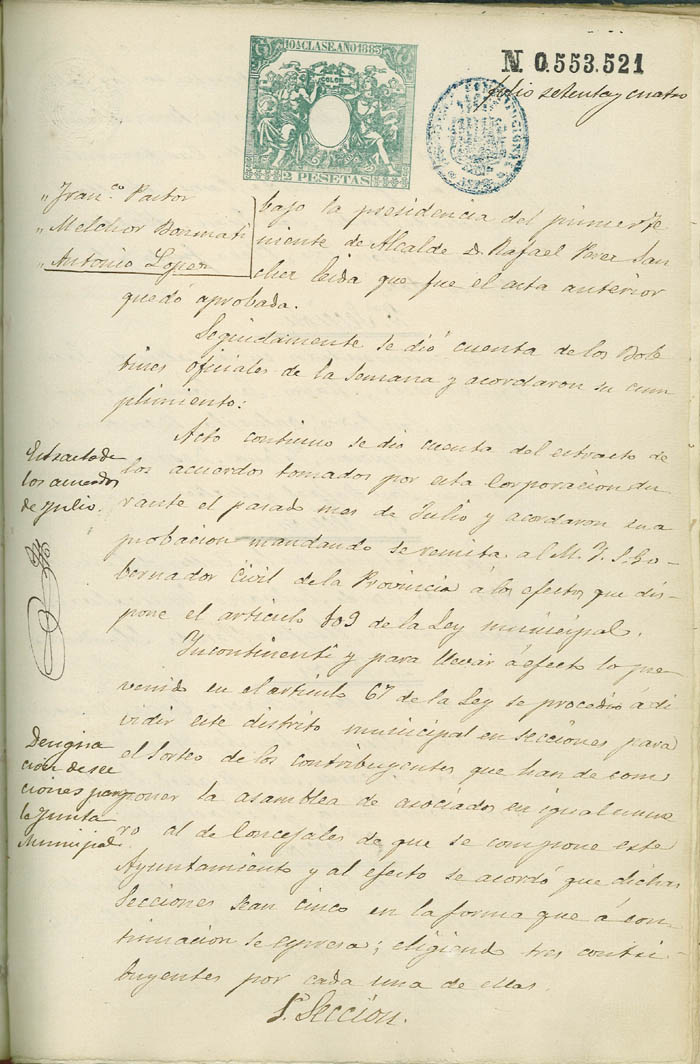 10ª CLASE. AÑO 1883
2 PESETAS
N. 0.553.521
folio setenta y cuatro
" Franco. Pastor
" Melchor Bonmati
" Antonio Lopez
bajo la presidencia del primer Te
niente de Alcalde D. Rafael Perez San
chez leida que fue el acta anterior
quedó aprobada.
Seguidamente se dió cuenta de los Bole
tines oficiales de la semana y acordaron su cum
plimiento:
Extracto de
los acuerdos
de Julio.
Acto continuo se dio cuenta del estracto de
los acuerdos tomados por esta Corporacion du
rante el pasado mes de Julio y acordaron su a
probacion mandando se remita al M. Y. S. Go-
bernador Civil de la Provincia á los efectos que dis-
pone el articulo 109 de la Ley municipal.
Incontinenti y para llevar á efecto lo pre
venido en el articulo 67 de la Ley se procedió á di
vidir este distrito municipal en secciones para
Designa
cion de sec
ciones para
la Junta
Municipal
el sorteo de los contribuyentes que han de com
poner la asamblea de asociados en igual nume
ro al de Concejales de que se compone este
Ayuntamiento y al efecto se acordó que dichas
Secciones sean cinco en la forma que á con
tinuacion se espresa; eligiendo tres contri-
buyentes por cada una de ellas.
1ª Sección.